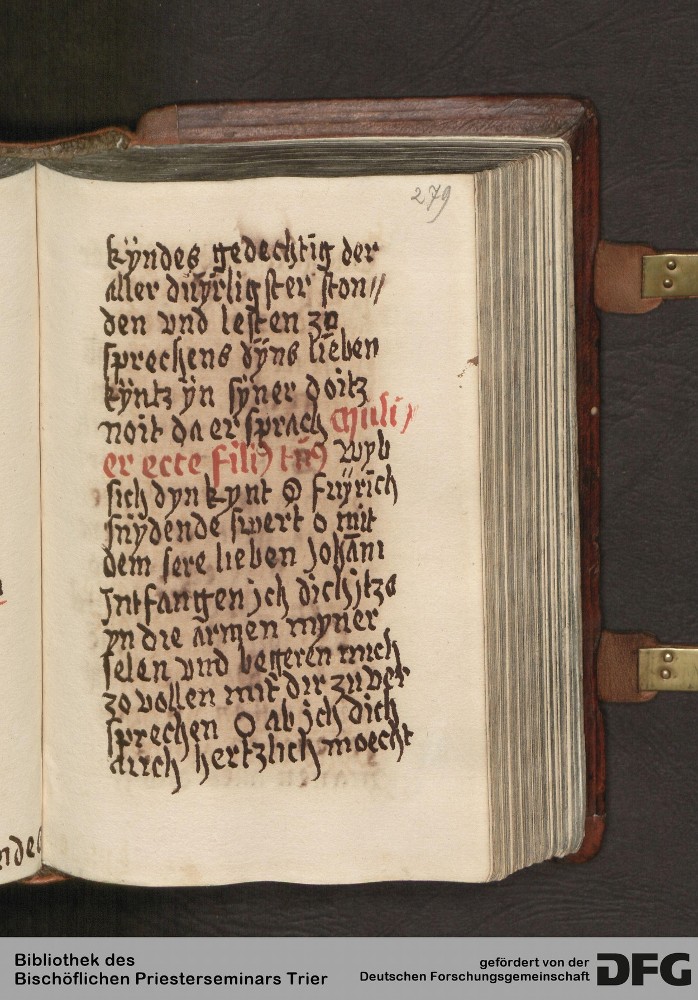 279
kÿndes gedechtig der
aller düyrlig ster ston//
den vnd lesten zo
sprechens dÿns lieben
kÿntz ÿn sÿner doitz
noit da er sprach Muli
er ecce filiꝰ tuꝰ wyb
sich dyn kynt O fuÿrich
snÿdende swert o mit
dem sere lieben Johāni
Jntfangen jch dich jtzo
yn die armen myner
selen vnd begeren mich
zo vollen mit dir zu ver
sprechen O ab jch dich
durch hertzlich moecht
ndes
Bibliothek des
Bischöflichen Priesterseminars Trier
gefördert von der
Deutschen Forschungsgemeinschaft
DFG